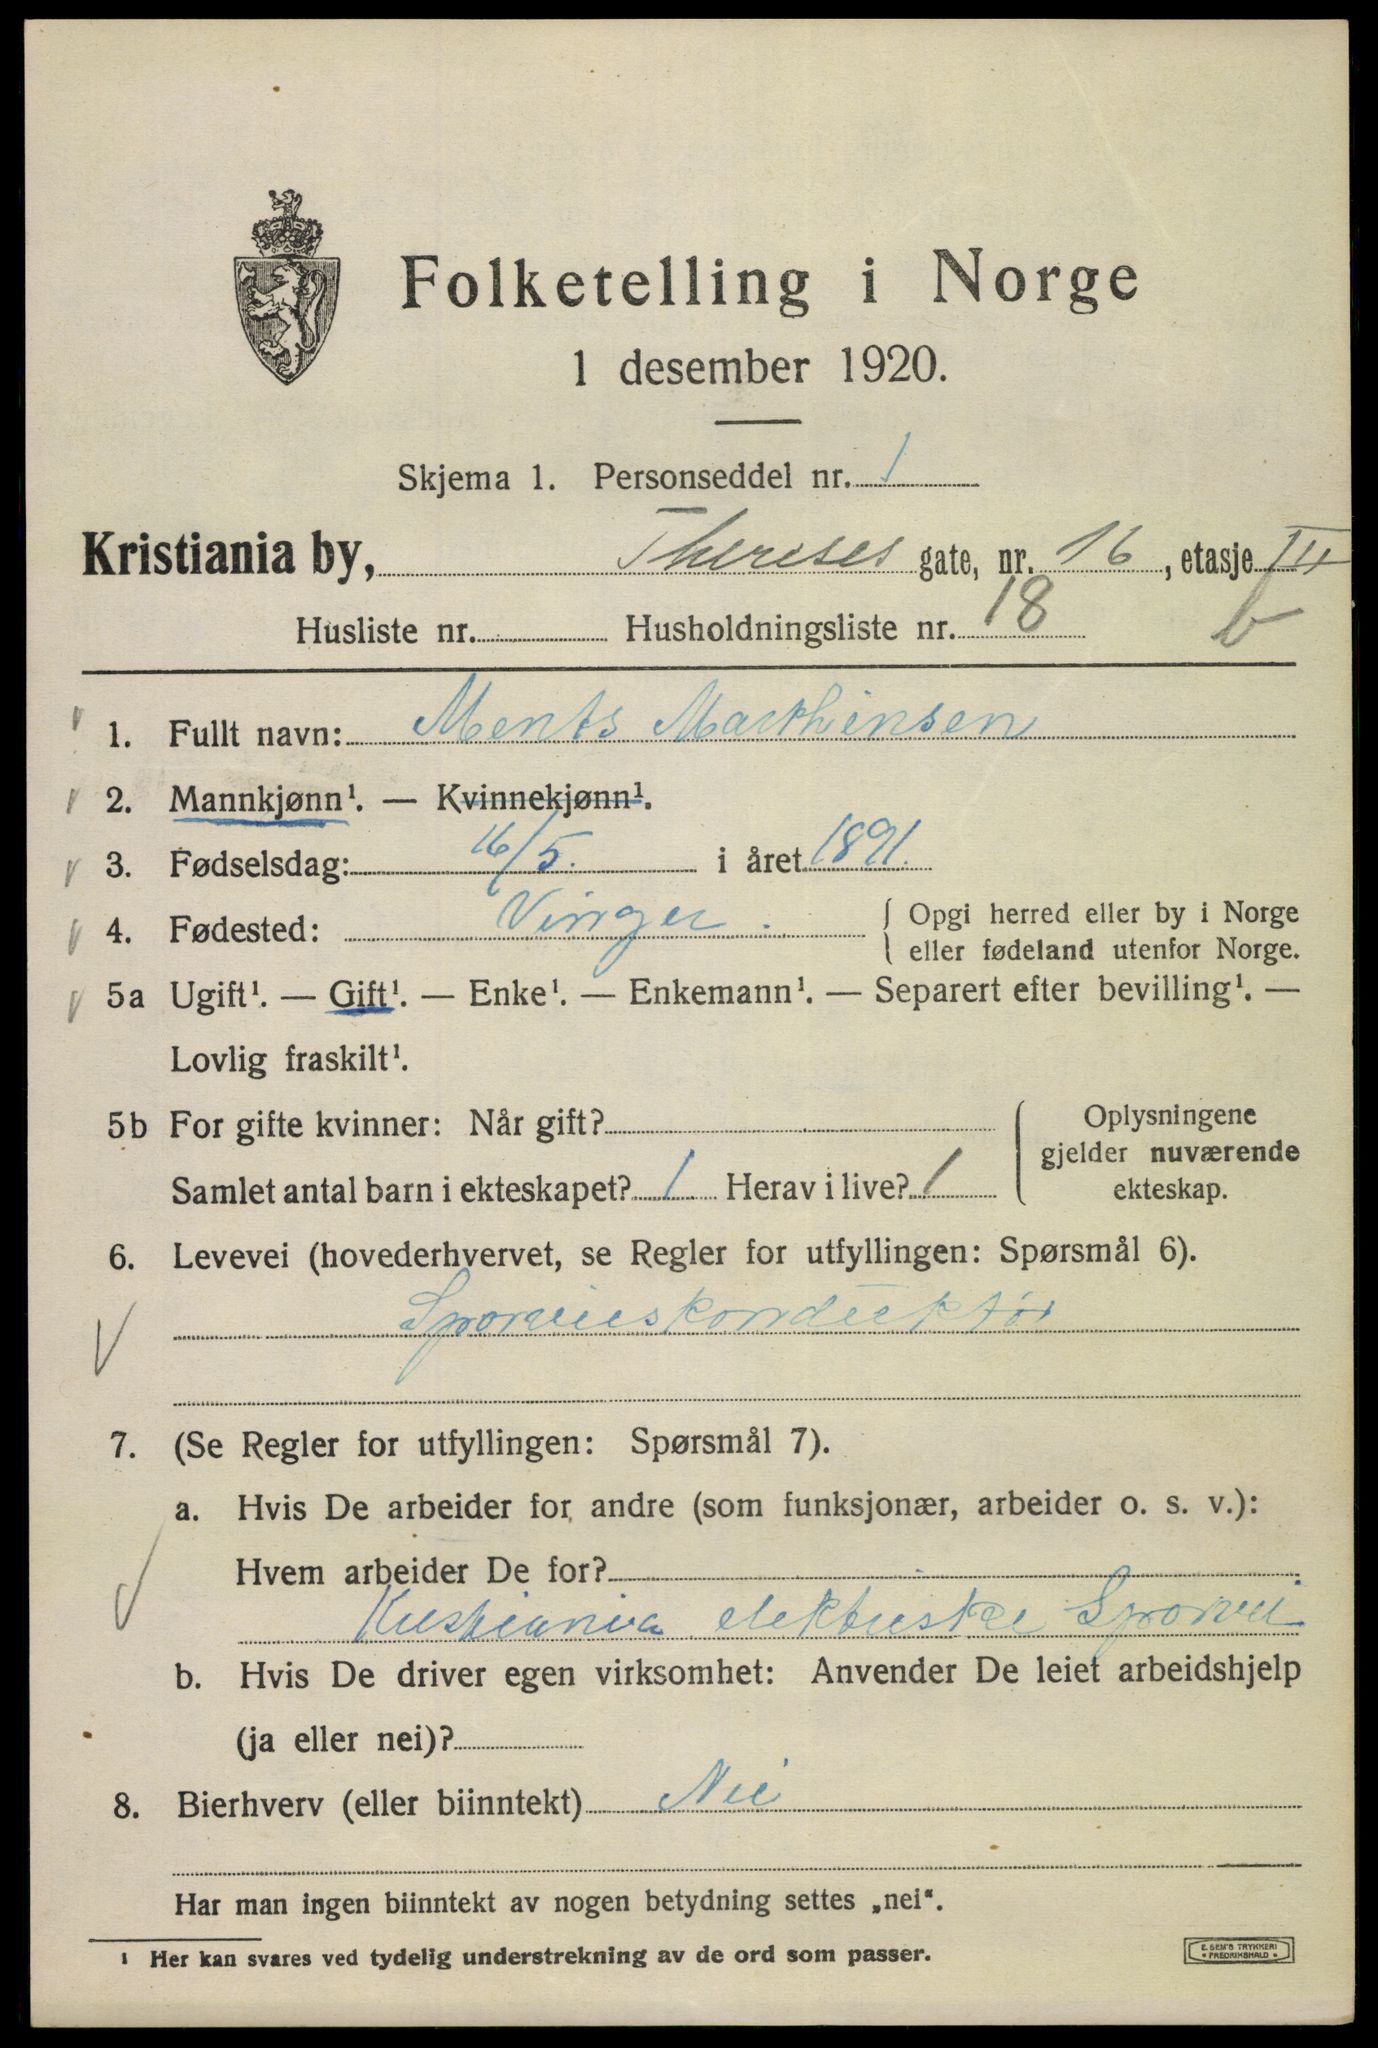 Folketelling i Norge
1 desember 1920.
Skjema 1. Personseddel nr. 1
Kristiania by, Thereses gate, nr. 16, etasje III
Husliste nr. Husholdningsliste nr. 18 b
1. Fullt navn: Ments Mathinsen
2. Mannkjønn¹. — Kvinnekjønn¹.
3. Fødselsdag: 16/5. i året 1891.
4. Fødested: Vinger. { Opgi herred eller by i Norge
eller fødeland utenfor Norge.
5a Ugift¹. — Gift¹. — Enke¹. — Enkemann¹. — Separert efter bevilling¹. —
Lovlig fraskilt¹.
5b For gifte kvinner: Når gift?
Samlet antal barn i ekteskapet? 1 Herav i live? 1
Oplysningene
gjelder nuværende
ekteskap.
6. Levevei (hovederhvervet, se Regler for utfyllingen: Spørsmål 6).
Sporveiskonduktør
7. (Se Regler for utfyllingen: Spørsmål 7).
a. Hvis De arbeider for andre (som funksjonær, arbeider o. s. v.):
Hvem arbeider De for?
Kristiania elektriske Sporvei
b. Hvis De driver egen virksomhet: Anvender De leiet arbeidshjelp
(ja eller nei)?
8. Bierhverv (eller biinntekt) Nei
Har man ingen biinntekt av nogen betydning settes „nei“.
¹ Her kan svares ved tydelig understrekning av de ord som passer.
E. SEM'S TRYKKERI
• FREDRIKSHALD •